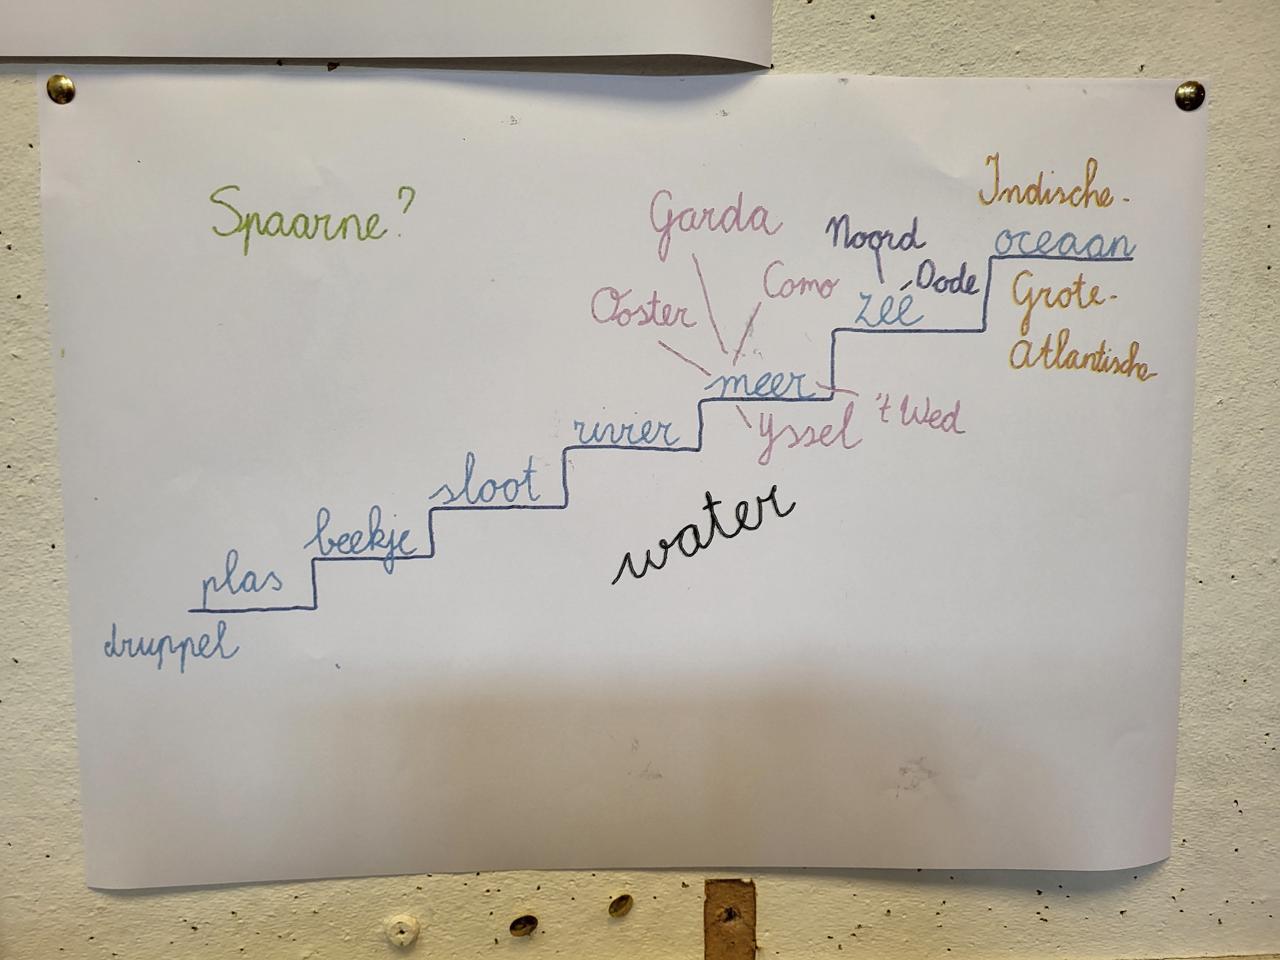 Spaarne?
Indische-
oceaan
Grote-
Atlantische
Noord
Dode
zee
Garda
Como
Ooster
meer
't Wed
Yssel
rivier
sloot
beekje
plas
druppel
water